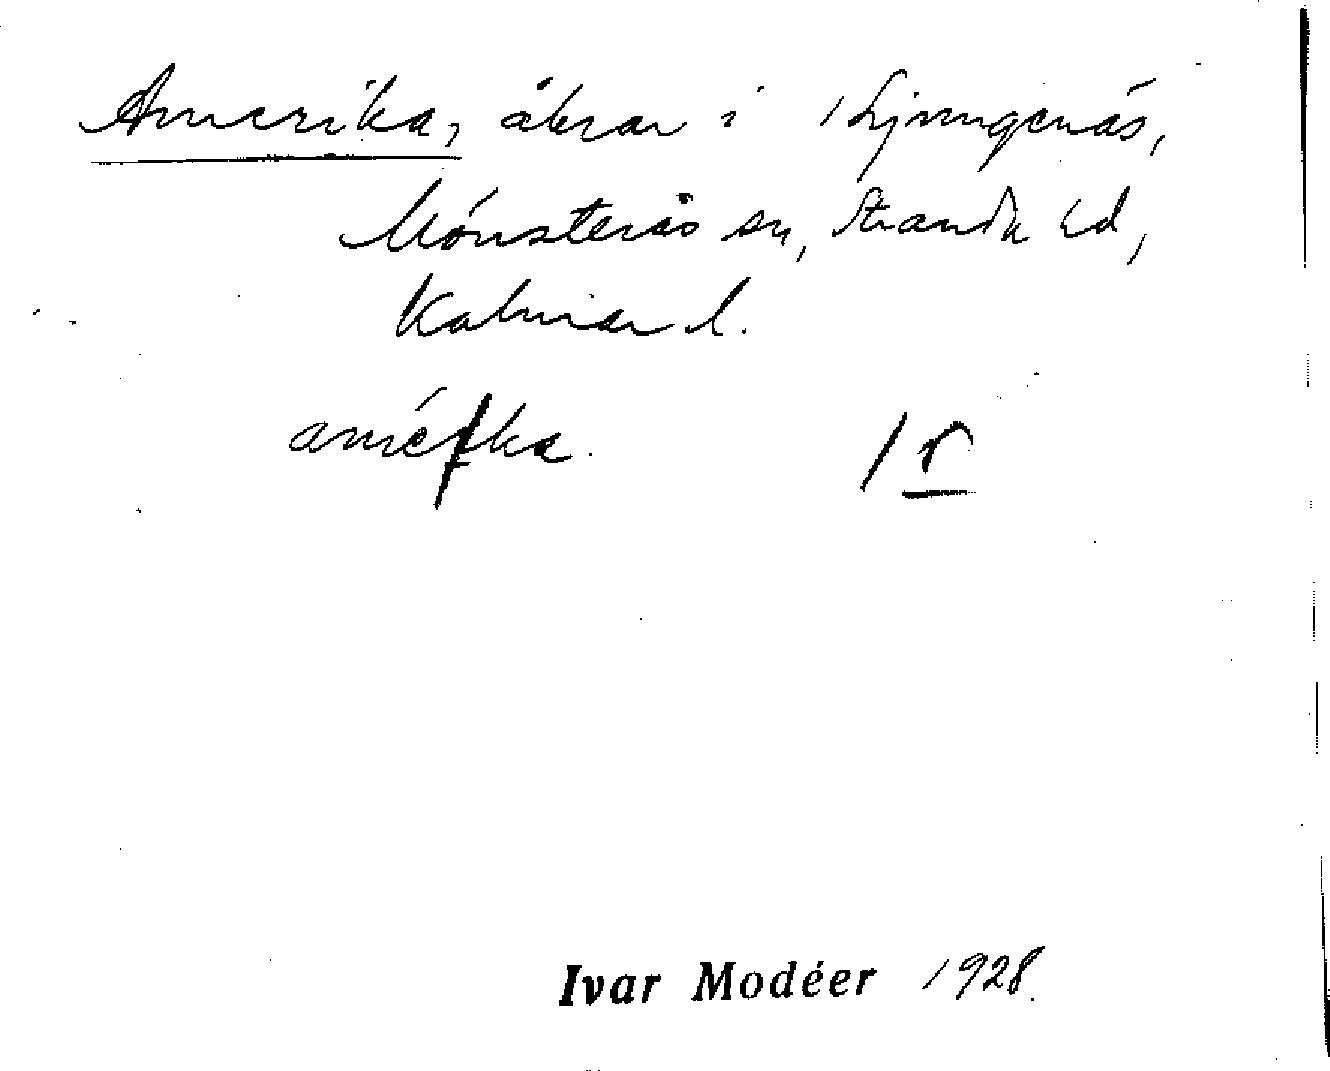 Amerika, åkrar i Ljungenäs,
Mönsterås sn, Stranda hd,
Kalmar l.
r
Ivar Modéer 1928.